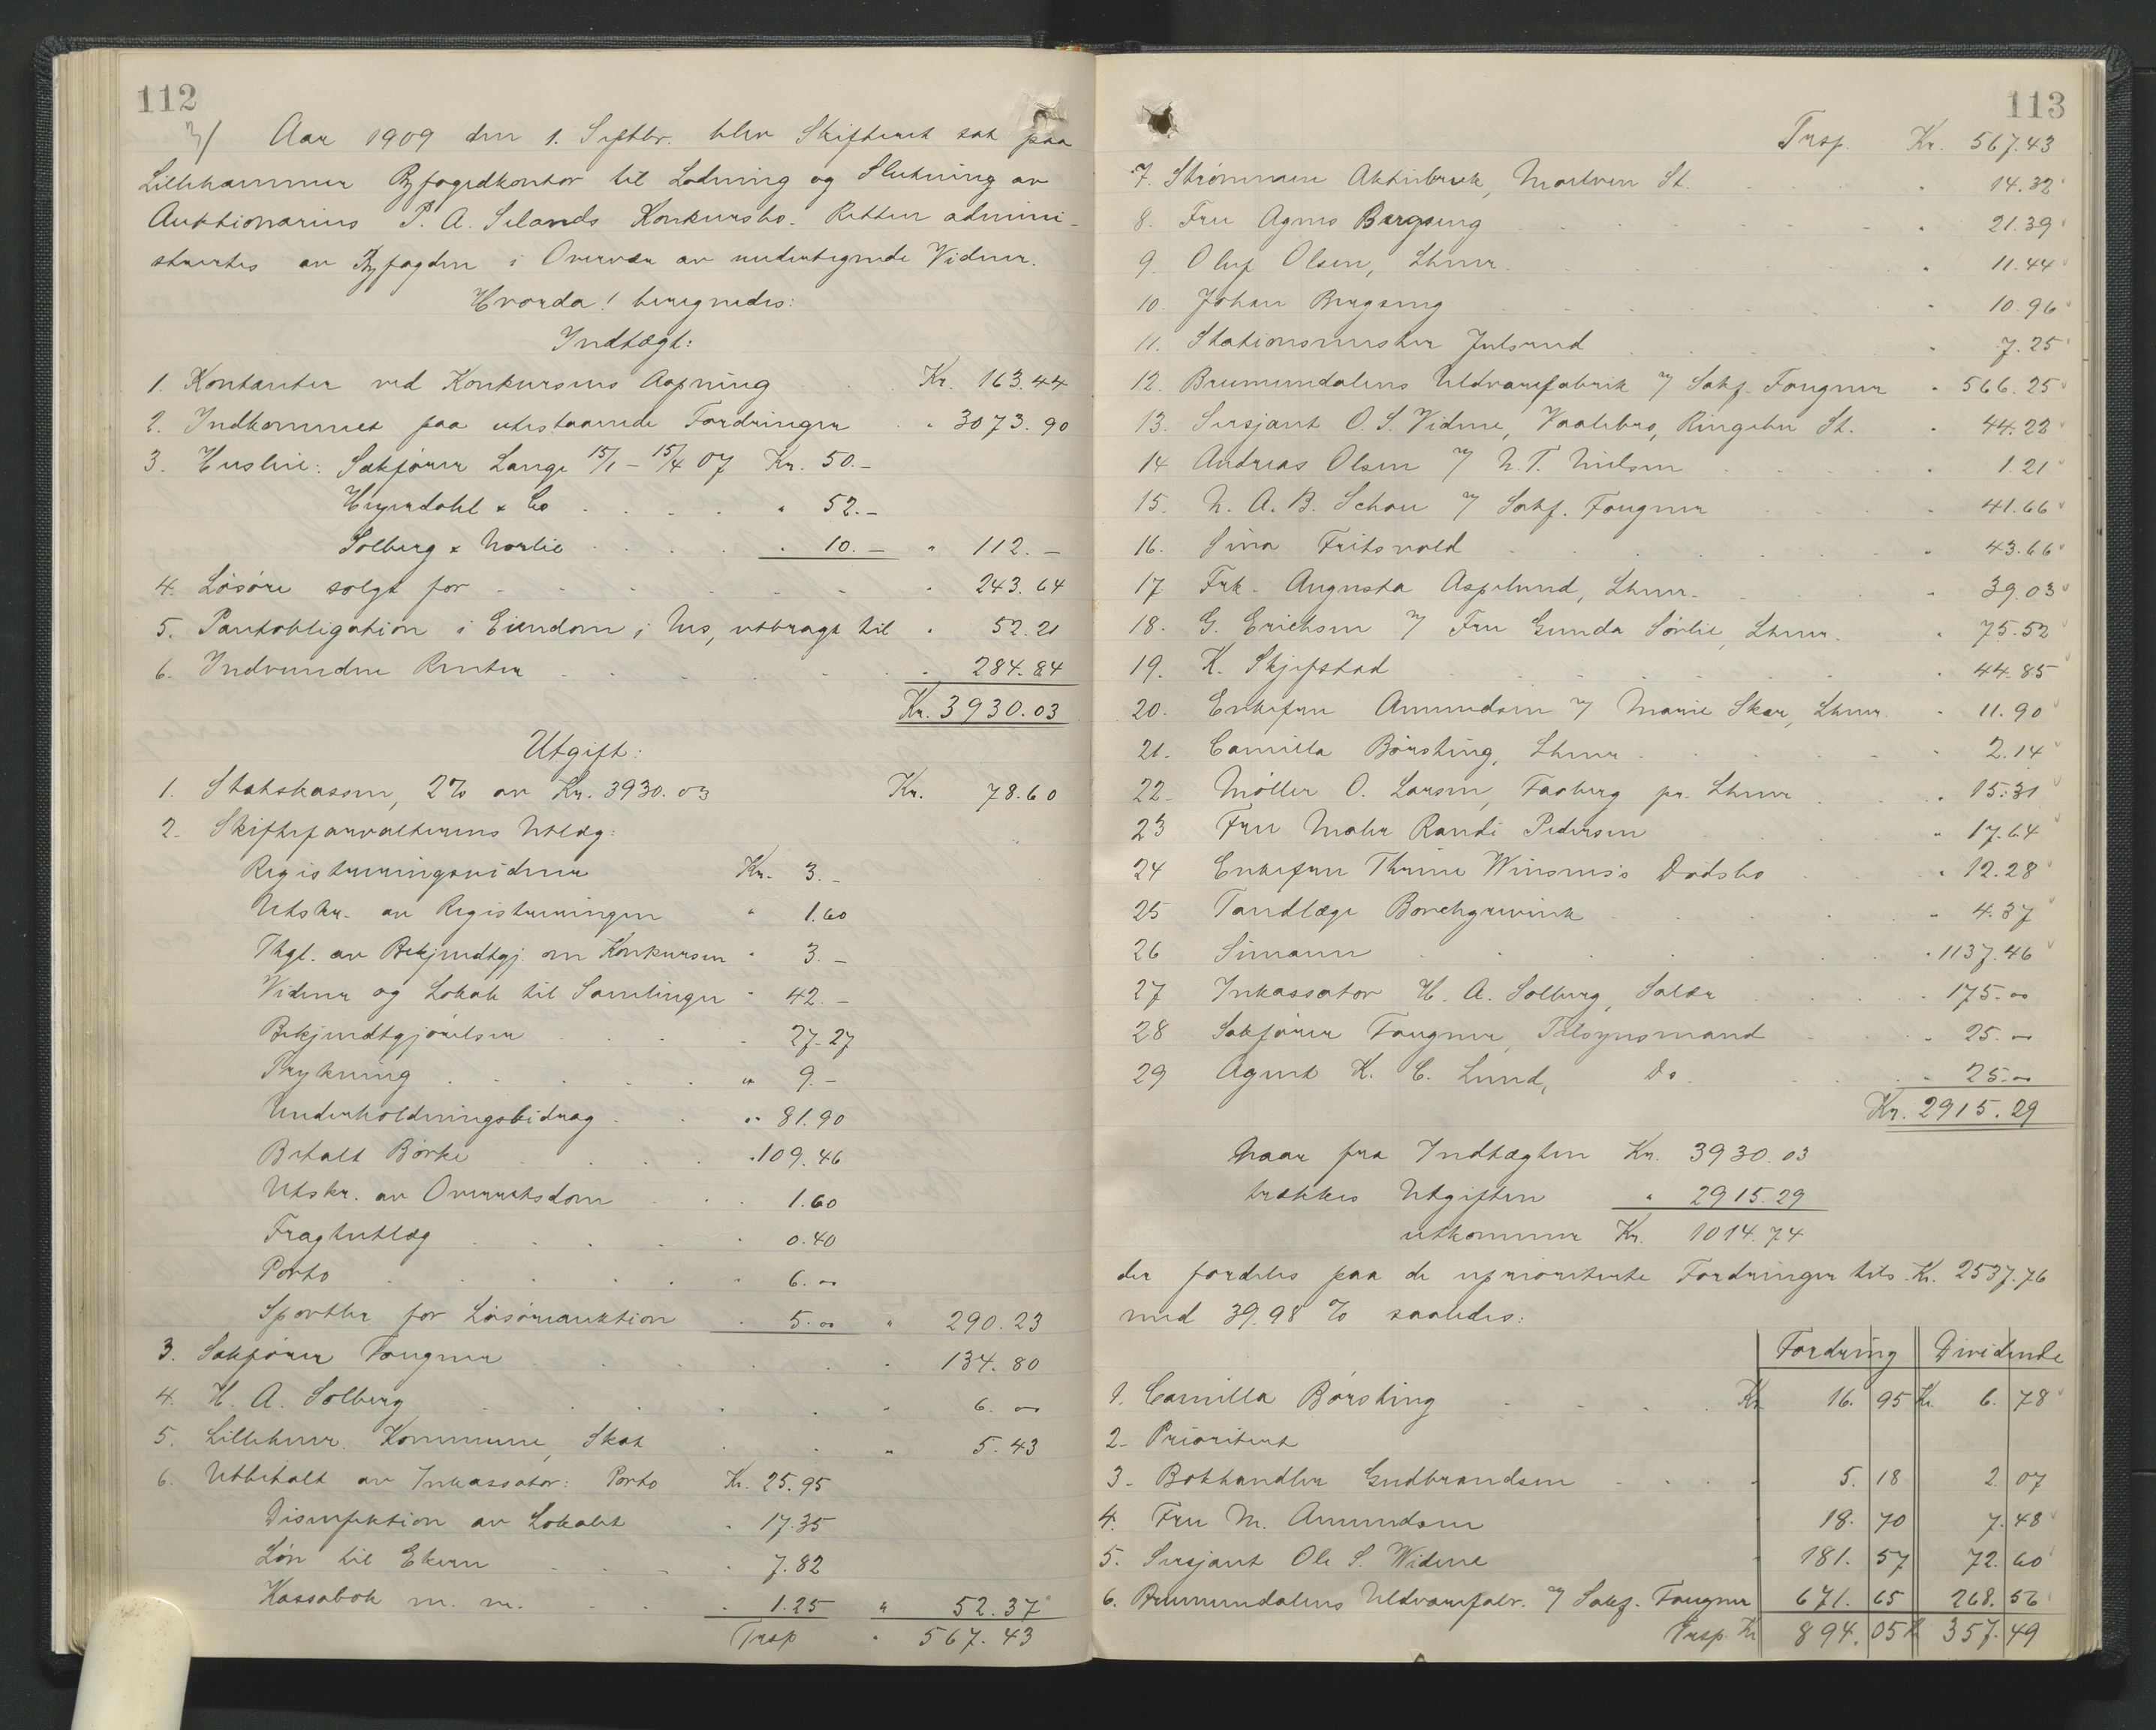 112
7/ Aar 1909 den 1. Septbr. blev Skifteret sat paa
Lillehammer Byfogedkontor til Lodning og Slutning av
Auktionarius P. A. Selands Konkursbo. Retten admini-
strertes av Byfogden i Overvær av undertegnede Vidner.
Hvorda! beregnedes:
Indtægt:
1. Kontanter ved Konkursens Aapning Kr. 163.44
2. Indkommet paa utestaaende Fordringer " 3073.90
3. Husleie: Sakfører Lange 15/1 – 15/4 07 Kr. 50.–
Heyerdahl & Co " 52.–
Solberg & Norlie " 10.– " 112.–
4. Løsøre solgt for " 243.64
5. Pantobligation i Eiendom i Us, utbragt til " 52.21
6. Indvundne Renter " 284.84
Kr. 3930.03
Utgift:
1. Statskassen, 2% av Kr. 3930.03 Kr. 78.60
2. Skifteforvalterens Utlæg:
Registreringsvidner Kr. 3.–
Utskr. av Registreringen " 1.60
Thgl. av Bekjendtgj. om Konkursen " 3.–
Vidner og Lokale til Samlinger " 42.–
Bekjendtgjørelser " 27.27
Trykning " 9.–
Underholdningsbidrag " 81.90
Betalt Børke " 109.46
Utskr. av Overretsdom " 1.60
Fragtutlæg " 0.40
Porto " 6.00
Sportler for Løsøreauktion " 5.00 " 290.23
3. Sakfører Fougner " 134.80
4. H. A. Solberg " 6.00
5. Lillehmr. Kommune, Skat " 5.43
6. Utbetalt av Inkassator: Porto Kr. 25.95
Disinfektion av Lokalet " 17.35
Løn til Ekern " 7.82
Kassabok m. m. " 1.25 " 52.37
Trsp " 567.43
113
Trsp. Kr. 567.43
7. Strømmen Aktiebruk, Moelven St. " 14.32
8. Fru Agnes Bergseng " 21.39
9. Oluf Olsen, Lhmr. " 11.44
10. Johan Bergseng " 10.96
11. Stationsmester Julsrud " 7.25
12. Brumunddalens Uldvarefabrik v/ Sakf. Fougner " 566.25
13. Sersjant O. S. Vidme, Vaalebro, Ringebu St. " 44.22
14 Andreas Olsen v/ N. T. Nielsen 1.21
15. N. A. B. Schou v/ Sakf. Fougner " 41.66
16. Sina Fritsvold " 43.66
17 Frk. Augusta Asplund, Lhmr. " 39.03
18. G. Erichsen v/ Fru Gunda Sørlie, Lhmr. " 75.52
19. K. Skjefstad " 44.85
20. Enkefru Amundsen v/ Marie Skar, Lhmr " 11.90
21. Camilla Børsting, Lhmr " 2.14
22. Møller O. Larsen, Faaberg pr. Lhmr " 15.31
23 Fru Maler Randi Pedersen " 17.64
24 Enkefru Thrine Winsnes's Dødsbo " 12.28
25 Tandlæge Borchgrevink " 4.37
26 Simann " 1137.46
27 Inkassator H. A. Solberg, Salær " 175.00
28 Sakfører Fougner, Tilsynsmand " 25.00
29 Agent K. C. Lund, Do " 25.00
Kr. 2915.29
Naar fra Indtægten Kr. 3930.03
trækkes Utgiften " 2915.29
utkommer Kr. 1014.74
der fordeles paa de uprioriterte Fordringer tils. Kr. 2537.76
med 39.98 % saaledes:
Fordring Dividende
1. Camilla Børsting Kr. 16. 95 Kr. 6. 78
2. Prioritert
3. Bokhandler Gudbrandsen 5. 18 2. 07
4. Fru M. Amundsen 18. 70 7. 48
5. Sersjant Ole S. Widme 181. 57 72. 60
6. Brumunddalens Uldvarefabr. v/ Sakf. Fougner 671. 65 268. 56
Trsp. Kr 894. 05 Kr 357. 49